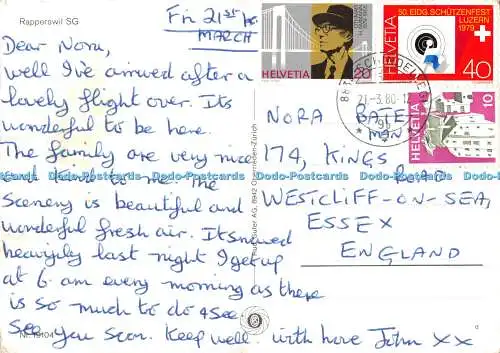 Rapperswil SG
Fri 21st
MARCH
Dear Nora,
well I've arrived after a
lovely flight over. Its
wonderful to be here.
The family are very nice
and kind to me. The
scenery is beautiful and
wonderful fresh air. It snowed
heavily last night I get up
at 6 am every morning as there
is so much to do & see
see you soon. Keep well. with love John XX
HELVETIA 20
50. EIDG. SCHÜTZENFEST
LUZERN
1979
HELVETIA 40
HELVETIA 10
21.-3.80-12
NORA BATE
MAN
174, KINGS
ROAD
WESTCLIFF-ON-SEA,
ESSEX
ENGLAND
Dodo-Postcards Dodo-Postcards Dodo-Postcards Dodo-Postcards